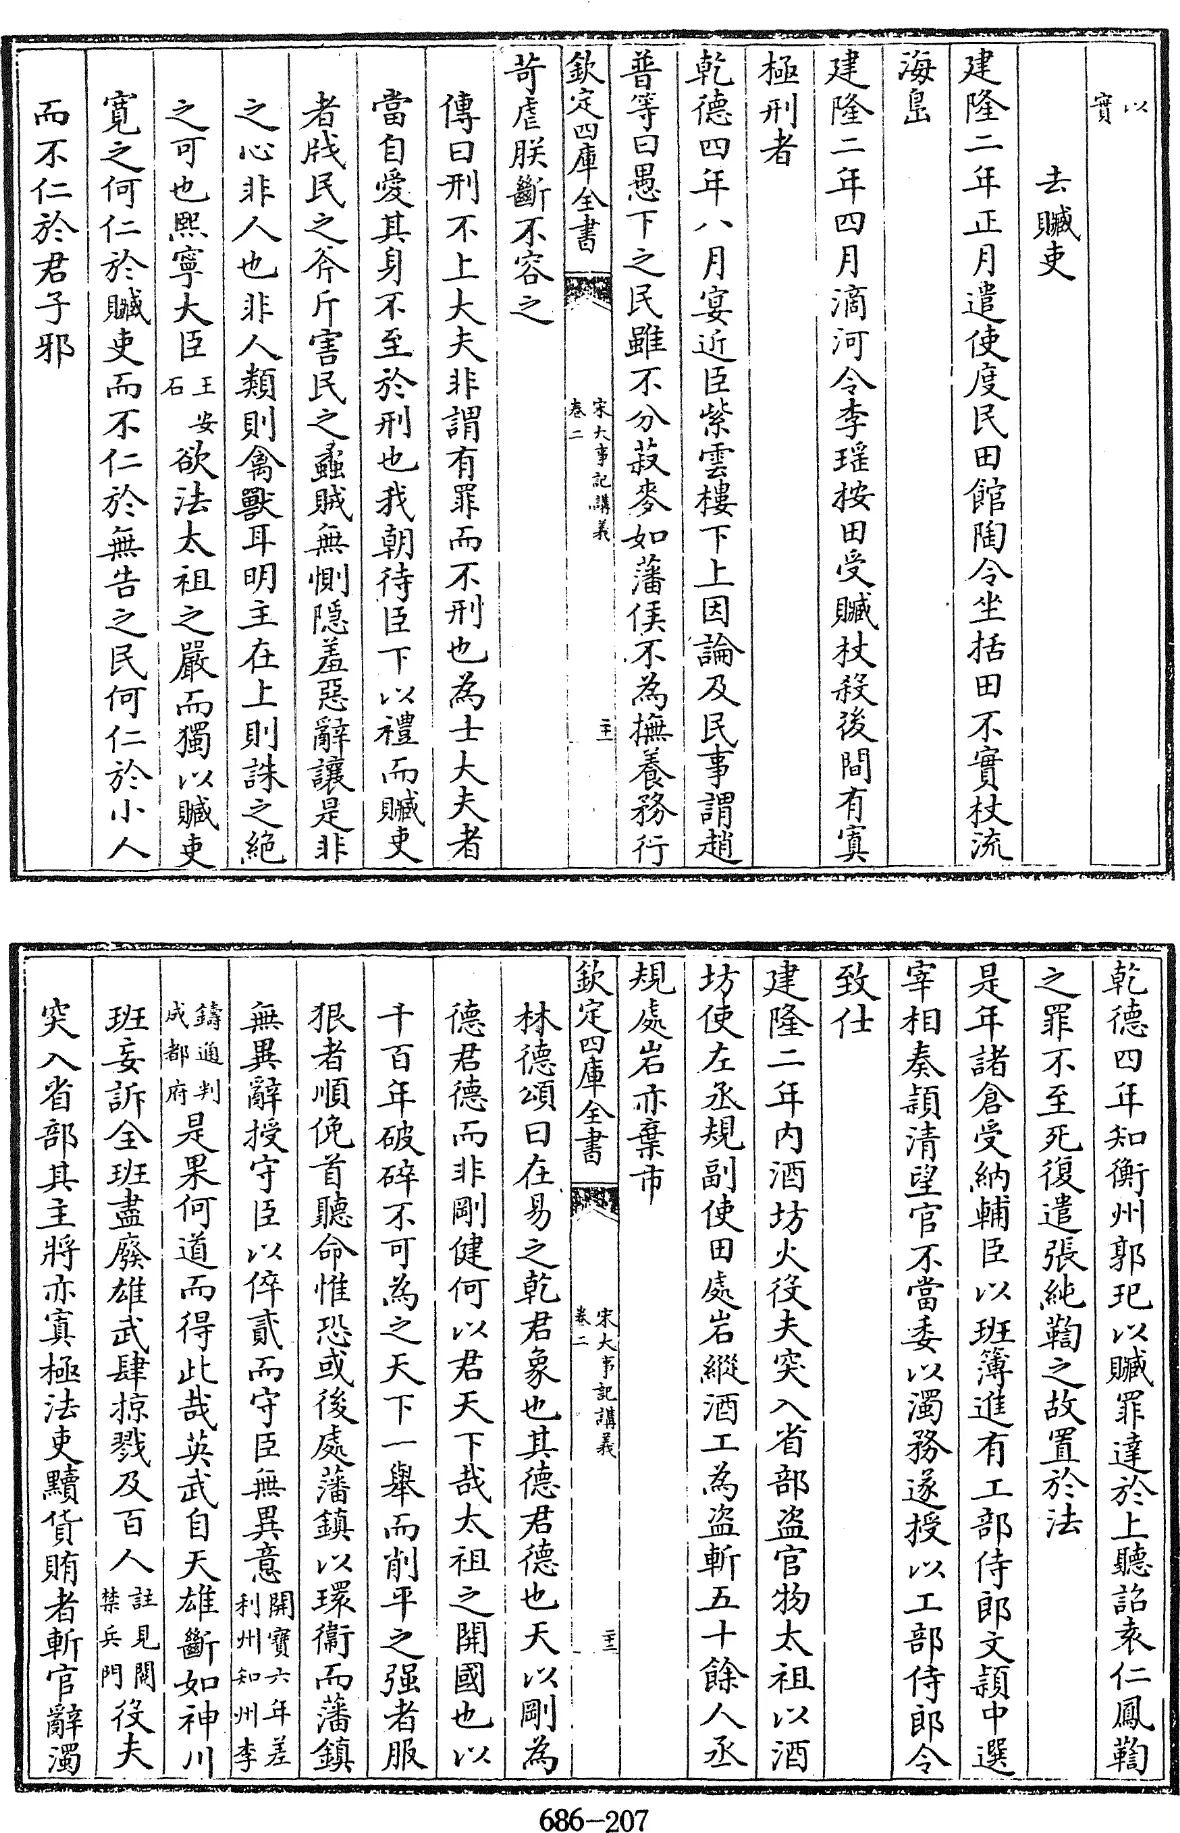 以
實
去贓吏
建隆二年正月遣使度民田館陶令坐括田不實杖流
海島
建隆二年四月滴河令李瑶按田受贓杖殺後間有寘
極刑者
乾德四年八月宴近臣紫雲樓下上因論及民事謂趙
普等曰愚下之民雖不分菽麥如藩侯不為撫養務行
欽定四庫全書
宋大事記講義
卷二
二十一
苛虐朕斷不容之
傳曰刑不上大夫非謂有罪而不刑也為士大夫者
當自愛其身不至於刑也我朝待臣下以禮而贓吏
者戕民之斧斤害民之蟊賊無惻隱羞惡辭讓是非
之心非人也非人類則禽獸耳明主在上則誅之絶
之可也熙寧大臣王安石欲法太祖之嚴而獨以贓吏
寛之何仁於贓吏而不仁於無告之民何仁於小人
而不仁於君子邪
乾德四年知衡州郭玘以贓罪達於上聽詔袁仁鳳鞫
之罪不至死復遣張純鞫之故置於法
是年諸倉受納輔臣以班簿進有工部侍郎文頴中選
宰相奏頴清望官不當委以濁務遂授以工部侍郎令
致仕
建隆二年内酒坊火役夫突入省部盗官物太祖以酒
坊使左丞規副使田處岩縱酒工為盗斬五十餘人丞
規處岩亦棄市
欽定四庫全書
宋大事記講義
卷二
二十二
林德頌曰在易之乾君象也其德君德也天以剛為
德君德而非剛健何以君天下哉太祖之開國也以
千百年破碎不可為之天下一舉而削平之强者服
狠者順俛首聽命惟恐或後處藩鎮以環衞而藩鎮
無異辭授守臣以倅貳而守臣無異意開寶六年差利州知州李
鑄通判成都府是果何道而得此哉英武自天雄斷如神川
班妄訴全班盡廢雄武肆掠戮及百人註見閱禁兵門役夫
突入省部其主將亦寘極法吏黷貨賄者斬官辭濁
686-207